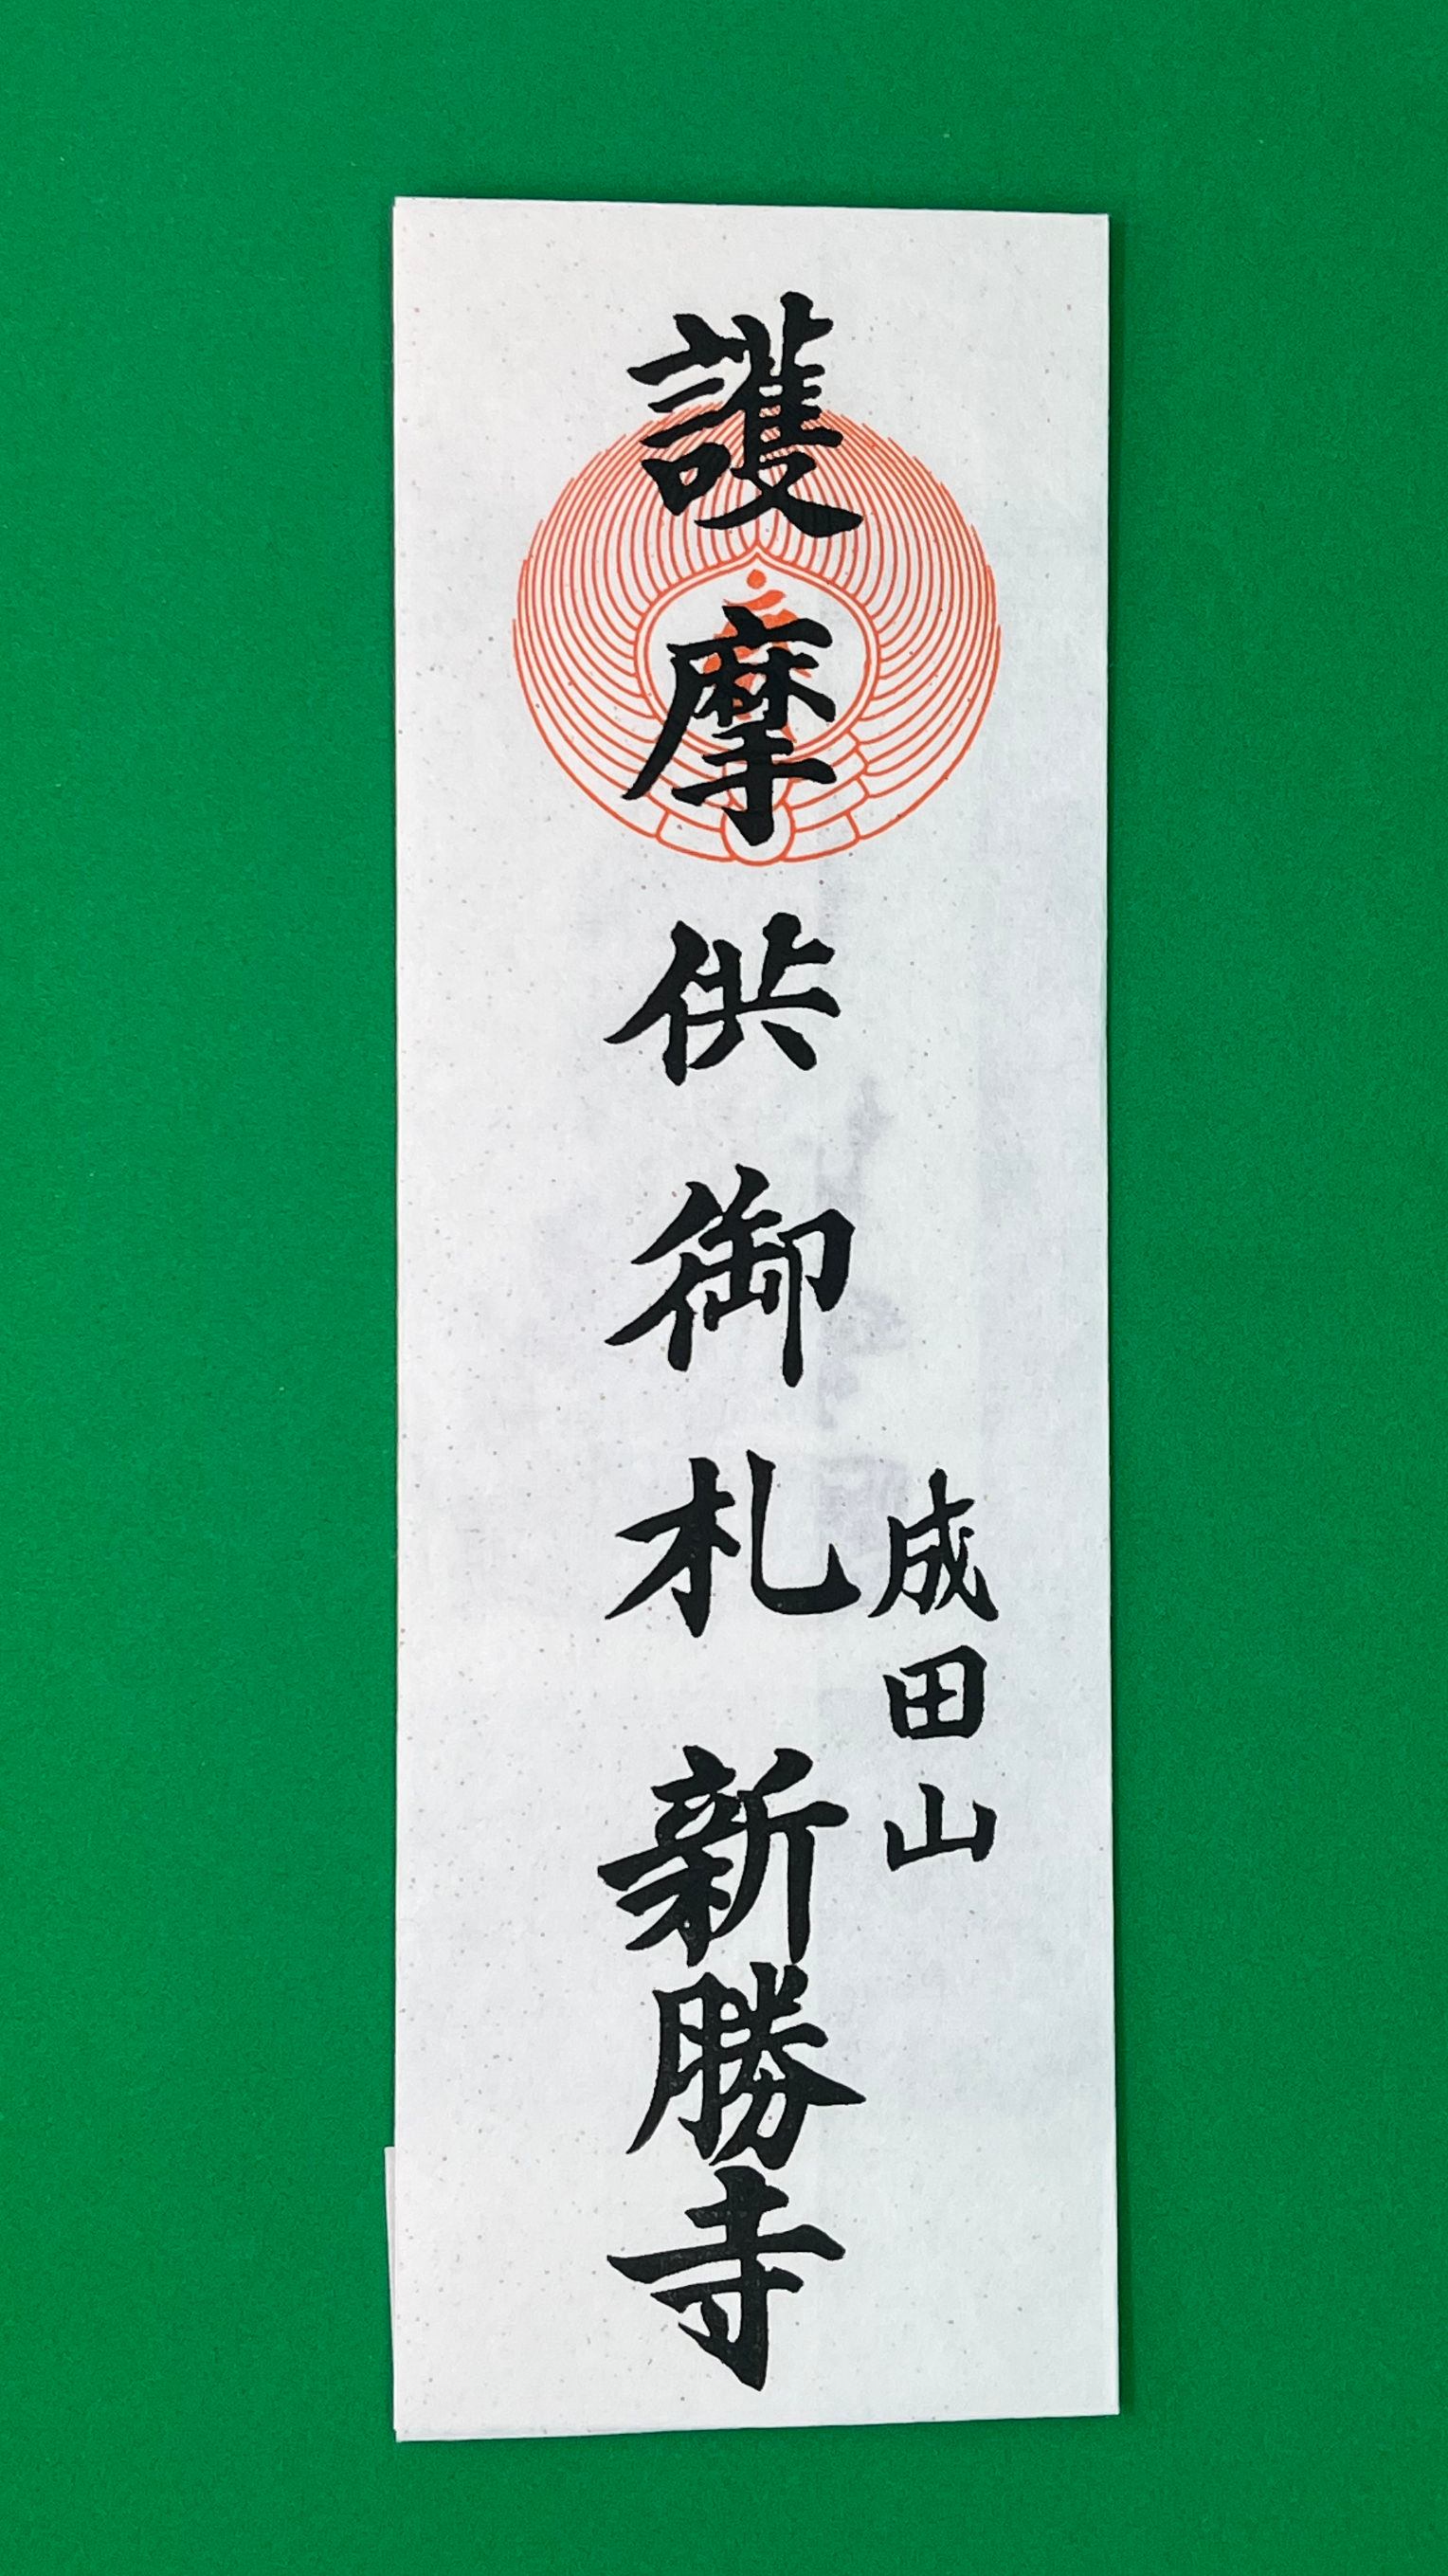 護摩供御札
成田山
新勝寺